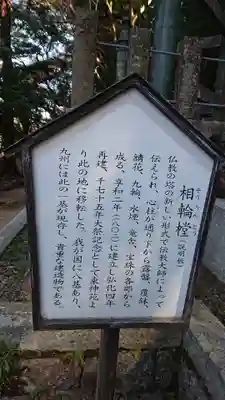 相輪橖(説明板)
そうりんとう
仏教の塔の新しい形式で伝教大師によって
伝えられ、心柱が通り下から露盤、覆鉢、
請花、九輪、水煙、竜舎、宝珠の各部から
成る、享和二年(一八〇二)建立し弘化四年
再建、千七十五年大祭記念として東神苑よ
り此の地に移転した。我が国に八基あり、
九州には此の一基が現存し、貴重な建造物である。